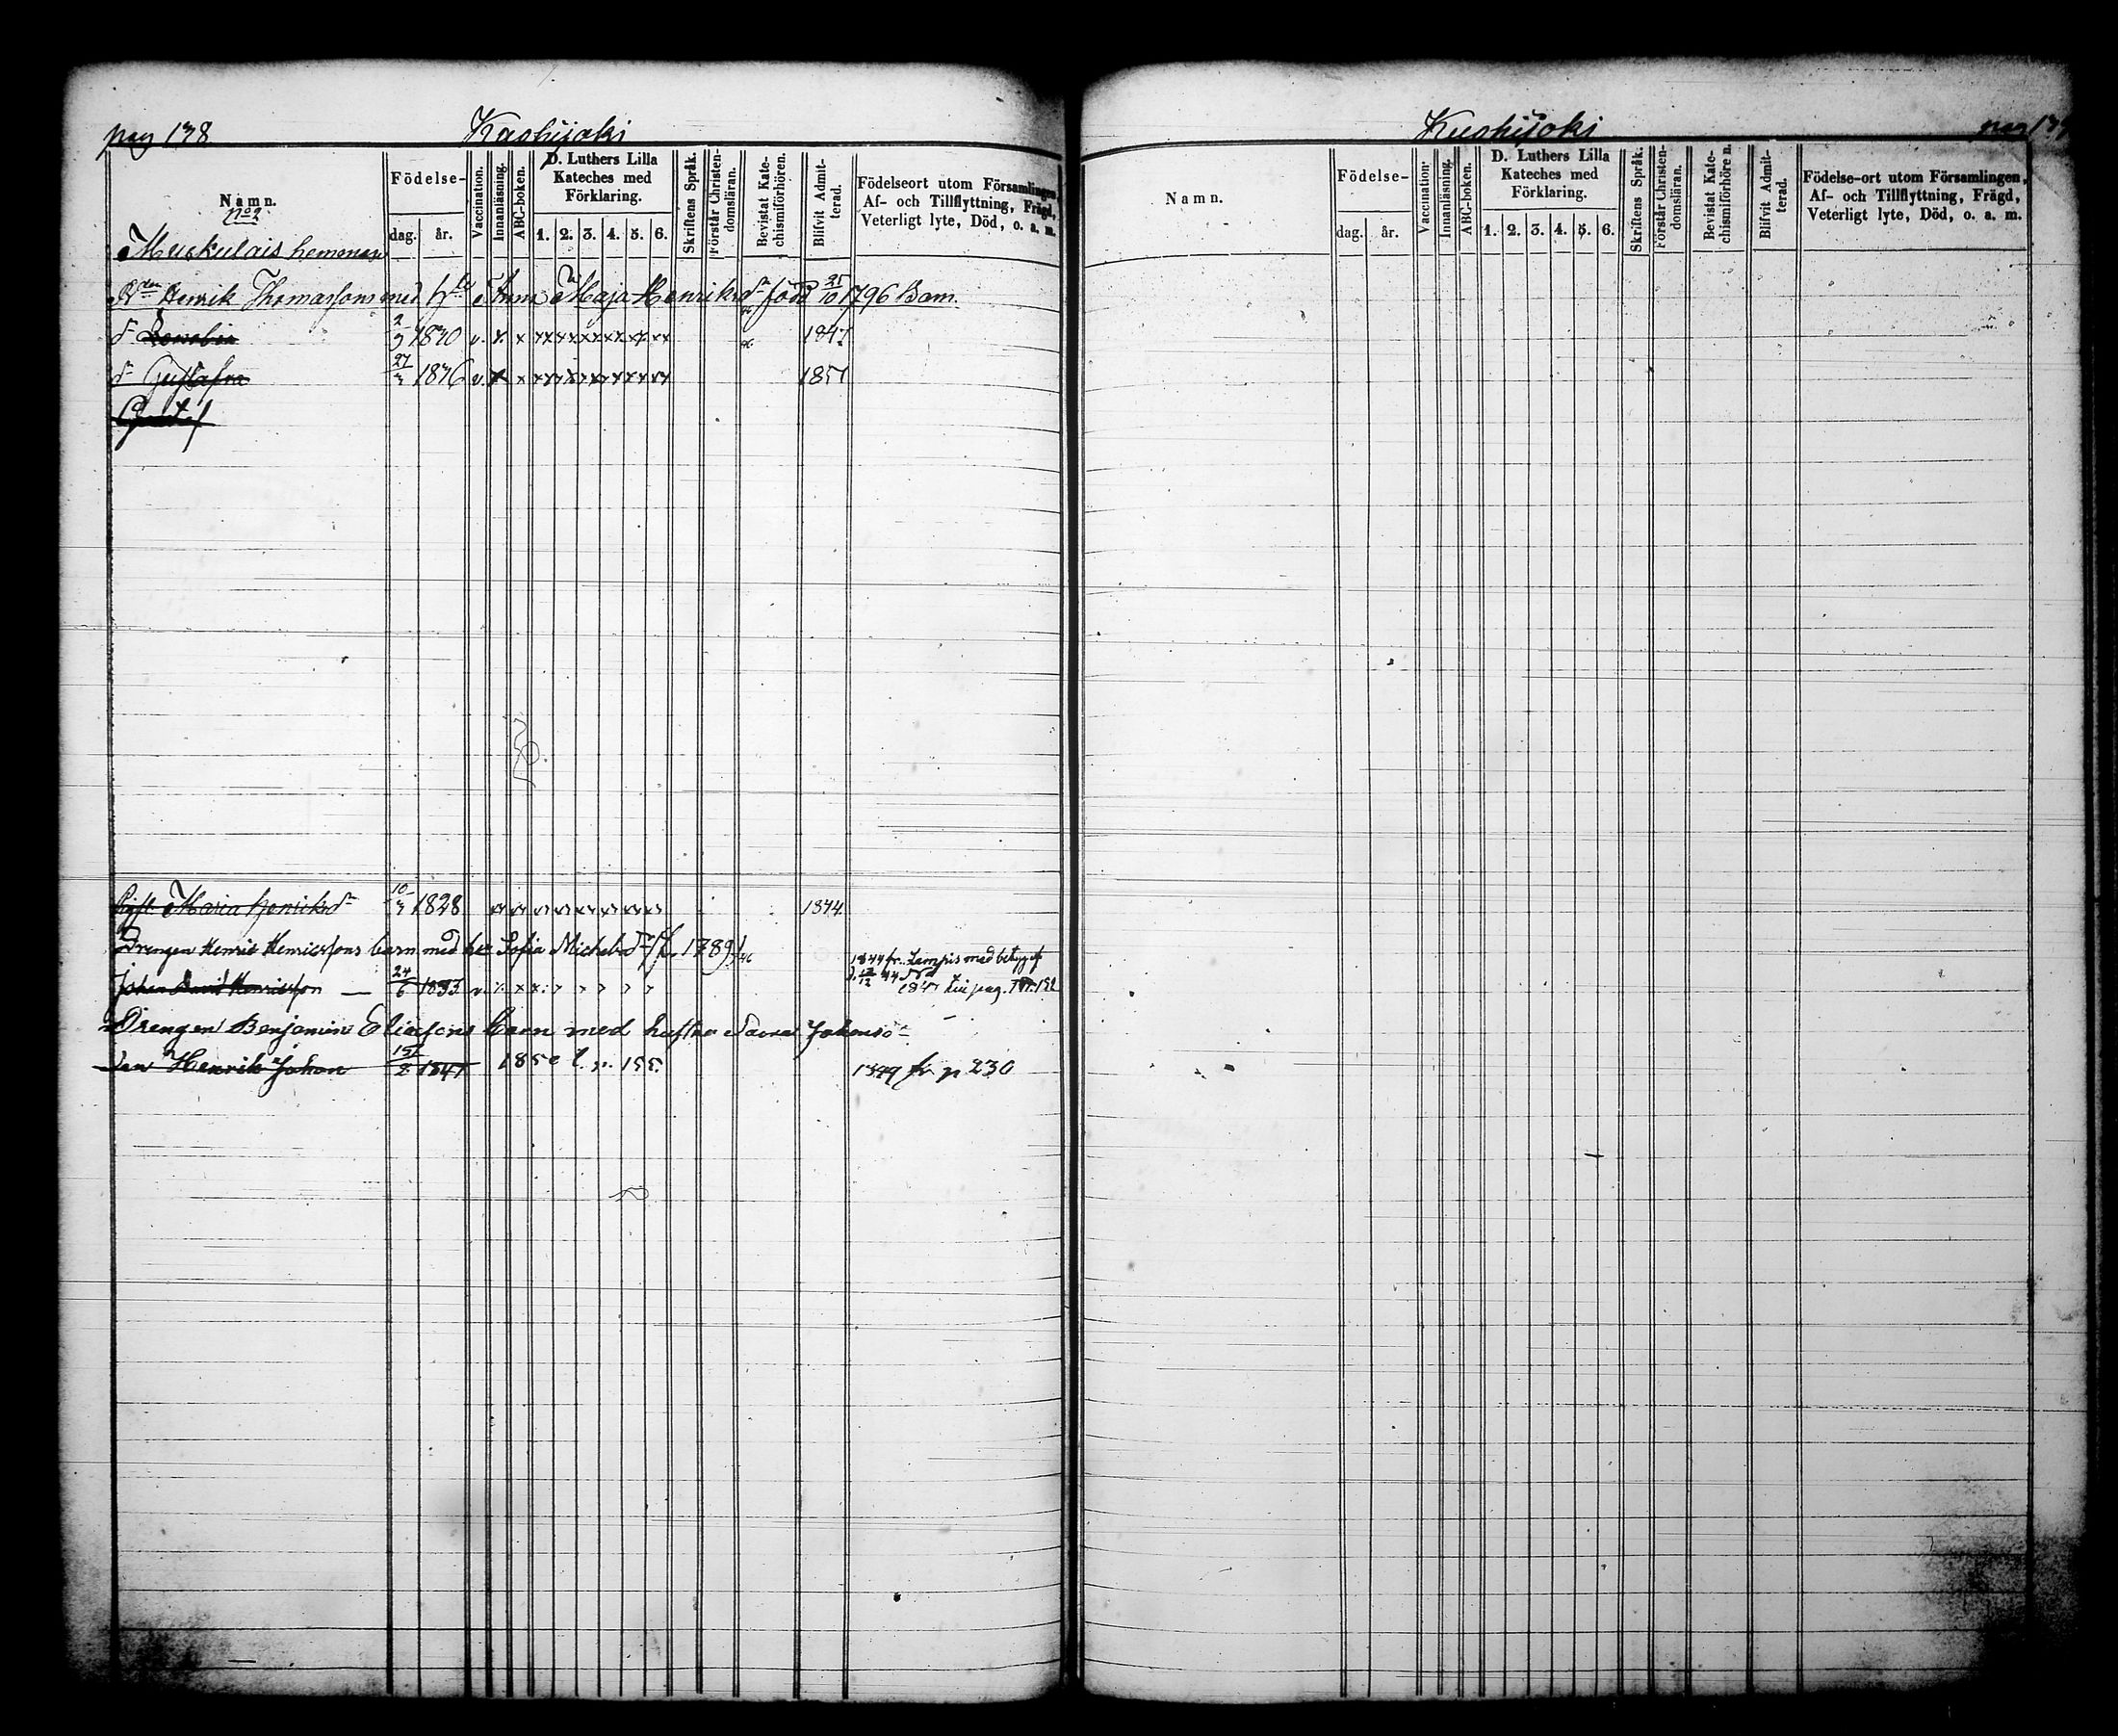 pag 138 Kashijoki
Namn. Födelse- dag. år. Vaccination. Innanläsning. ABC-boken. D. Luthers Lilla Kateches med Förklaring. 1. 2. 3. 4. 5. 6. Skriftens Språk. Förstår Christendomsläran. Bevistat Kate-chismiförhören. Blifvit Admit-terad. Födelseort utom Församlingen, Af- och Tillflyttning, Frägd, Veterligt lyte, Död, o. a. m.
No 2
Muskulais hemman
Henrik Thomassons med Anna Maja Henriksdr född 25/10 1796 Barn.
dr 2/3 1830 v. x x xx xx xx xx xx xx 1847
dr Gustafva 27/3 1836 v. x x xx xx xx xx xx xx 1851
Gustaf
Maria Henriksdr 10/3 1828 1844
Drengen Henric Henricssons barn med Sofia Michelsdr 1789
1844 fr. Lampis med betyg
Johan David Henricsson — 24/6 1833 v. x x x 1847 pag. 152
Drengen Benjamin Eliasons barn med hustru Johansdr
Son Henrik Johan 15/2 1847 1850 t. p. 155. 1849 fr p 230
Kushijoki pag 139
Namn. Födelse- dag. år. Vaccination. Innanläsning. ABC-boken. D. Luthers Lilla Kateches med Förklaring. 1. 2. 3. 4. 5. 6. Skriftens Språk. Förstår Christen-domsläran. Bevistat Kate-chismiförhören. Blifvit Admit-terad. Födelse-ort utom Församlingen, Af- och Tillflyttning, Frägd, Veterligt lyte, Död, o. a. m.